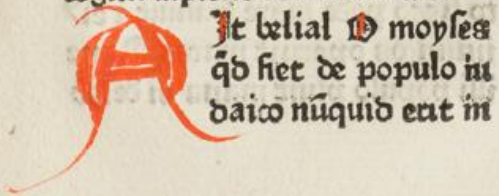 AIt belial O moyses
q̄d fiet de populo iu
daico nūquid erit in